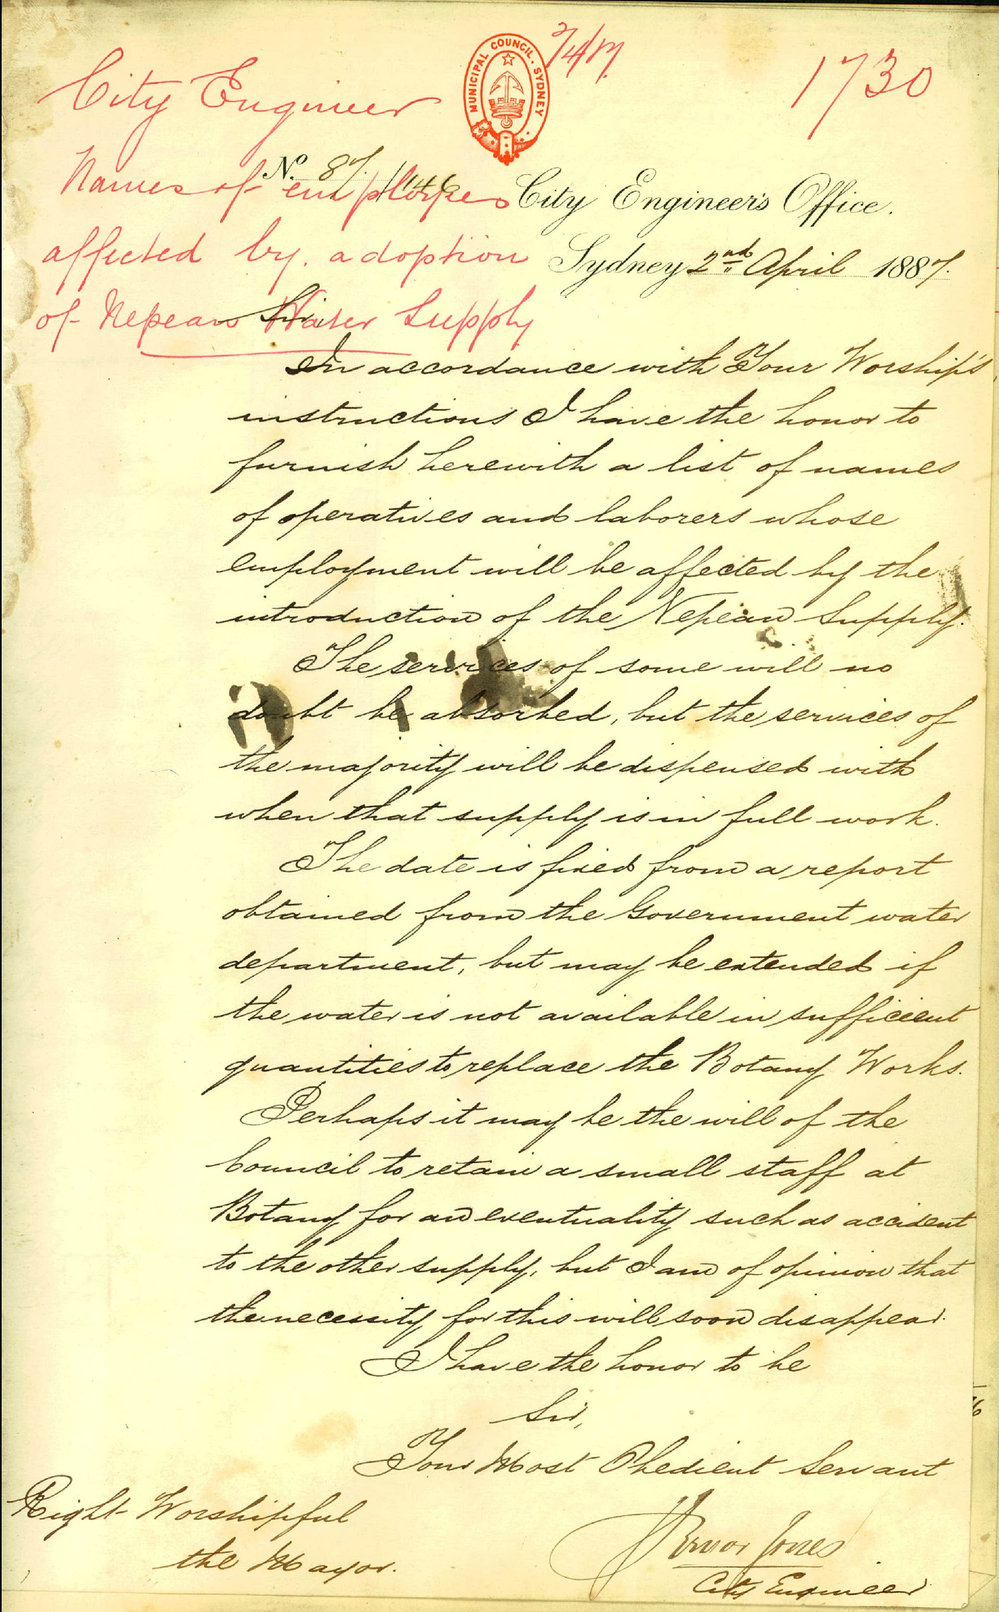 7/4/87.
1730
MUNICIPAL COUNCIL. SYDNEY
City Engineer
Names of employees
affected by adoption
of Nepean Water Supply
No. 87/
City Engineer's Office.
Sydney 2nd April 1887.
Sir
In accordance with Your Worship's
instructions I have the honor to
furnish herewith a list of names
of operatives and laborers whose
employment will be affected by the
introduction of the Nepean Supply.
The services of some will no
doubt be absorbed, but the services of
the majority will be dispensed with
when that supply is in full work.
The date is fixed from a report
obtained from the Government water
department, but may be extended if
the water is not available in sufficient
quantities to replace the Botany Works.
Perhaps it may be the will of the
Council to retain a small staff at
Botany for an eventuality such as accident
to the other supply, but I am of opinion that
the necessity for this will soon disappear.
I have the honor to be
Sir,
Your Most Obedient Servant
Trevor Jones
City Engineer
Right Worshipful
the Mayor.